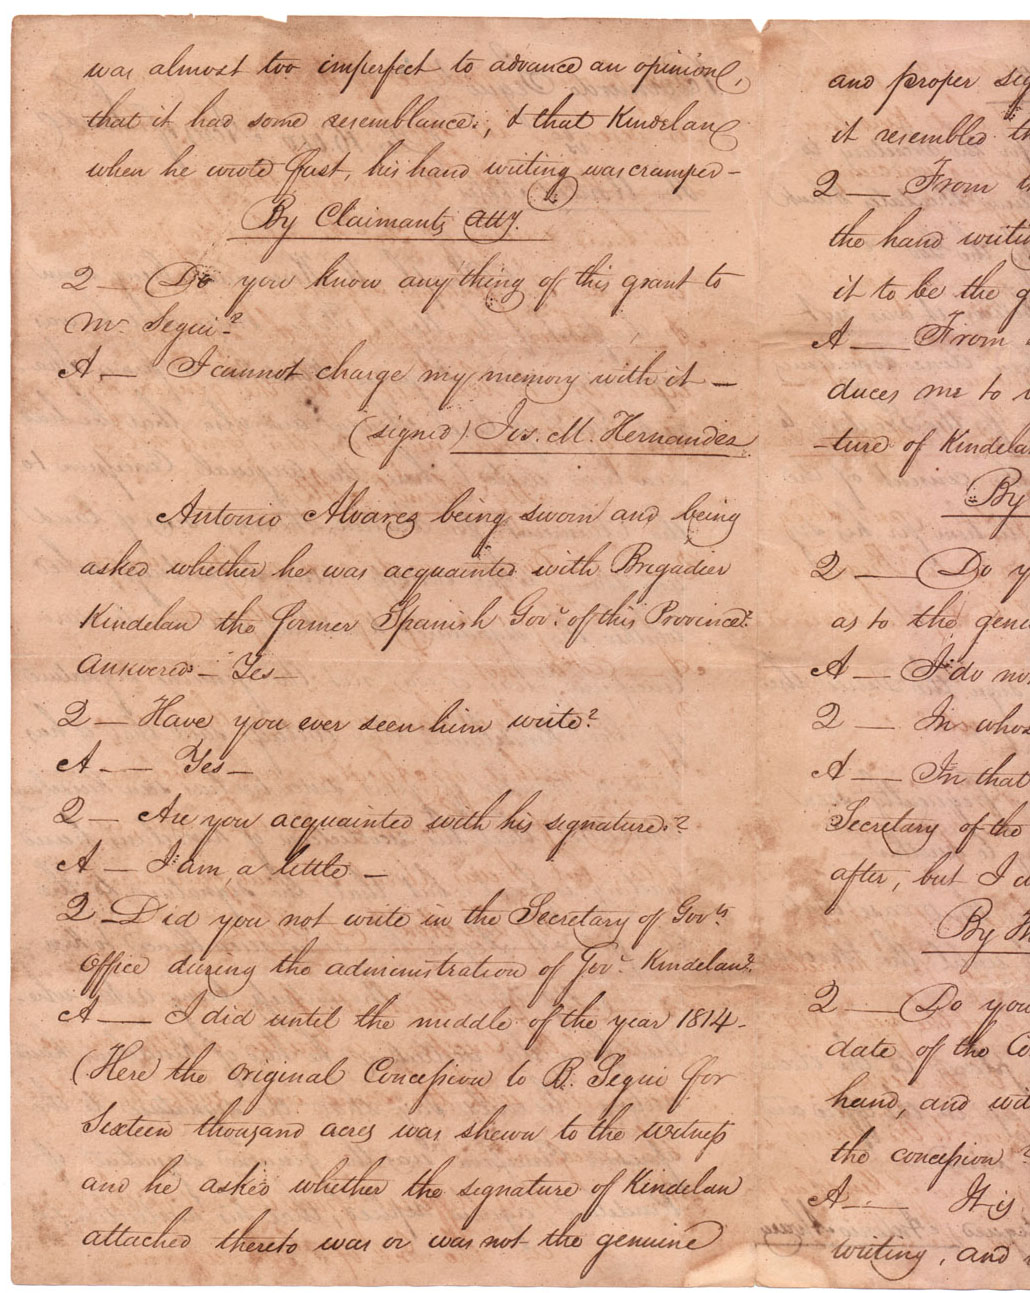 was almost too imperfect to advance an opinion,
that it had some resemblance, & that Kindelan
when he wrote fast, his hand writing was cramped –
By Claimants atty.
Q — Do you know anything of this grant to
Mr. Segui?
A — I cannot charge my memory with it —
(signed) Jos. M. Hernandez
Antonio Alvarez being sworn and being
asked whether he was acquainted with Brigadier
Kindelan the former Spanish Govr. of this Province?
answered – Yes –
Q — Have you ever seen him write?
A — Yes –
Q — Are you acquainted with his signature?
A — I am, a little –
Q — Did you not write in the Secretary of Govts
office during the administration of Govr. Kindelan?
A — I did until the middle of the year 1814 –
(Here the original Concession to B. Segui for
Sixteen thousand acres was shewn to the witness
and he asked whether the signature of Kindelan
attached thereto was or was not the genuine
and proper sig
it resembled th
Q — From t
the hand writin
it to be the g
A — From
duces me to
-ture of Kindela
By
Q — Do y
as to the genu
A — I do no
Q — In whos
A — In that
Secretary of the
after, but I
By
Q — Do you
date of the Co
hand, and
the concession?
A — It is
writing, and